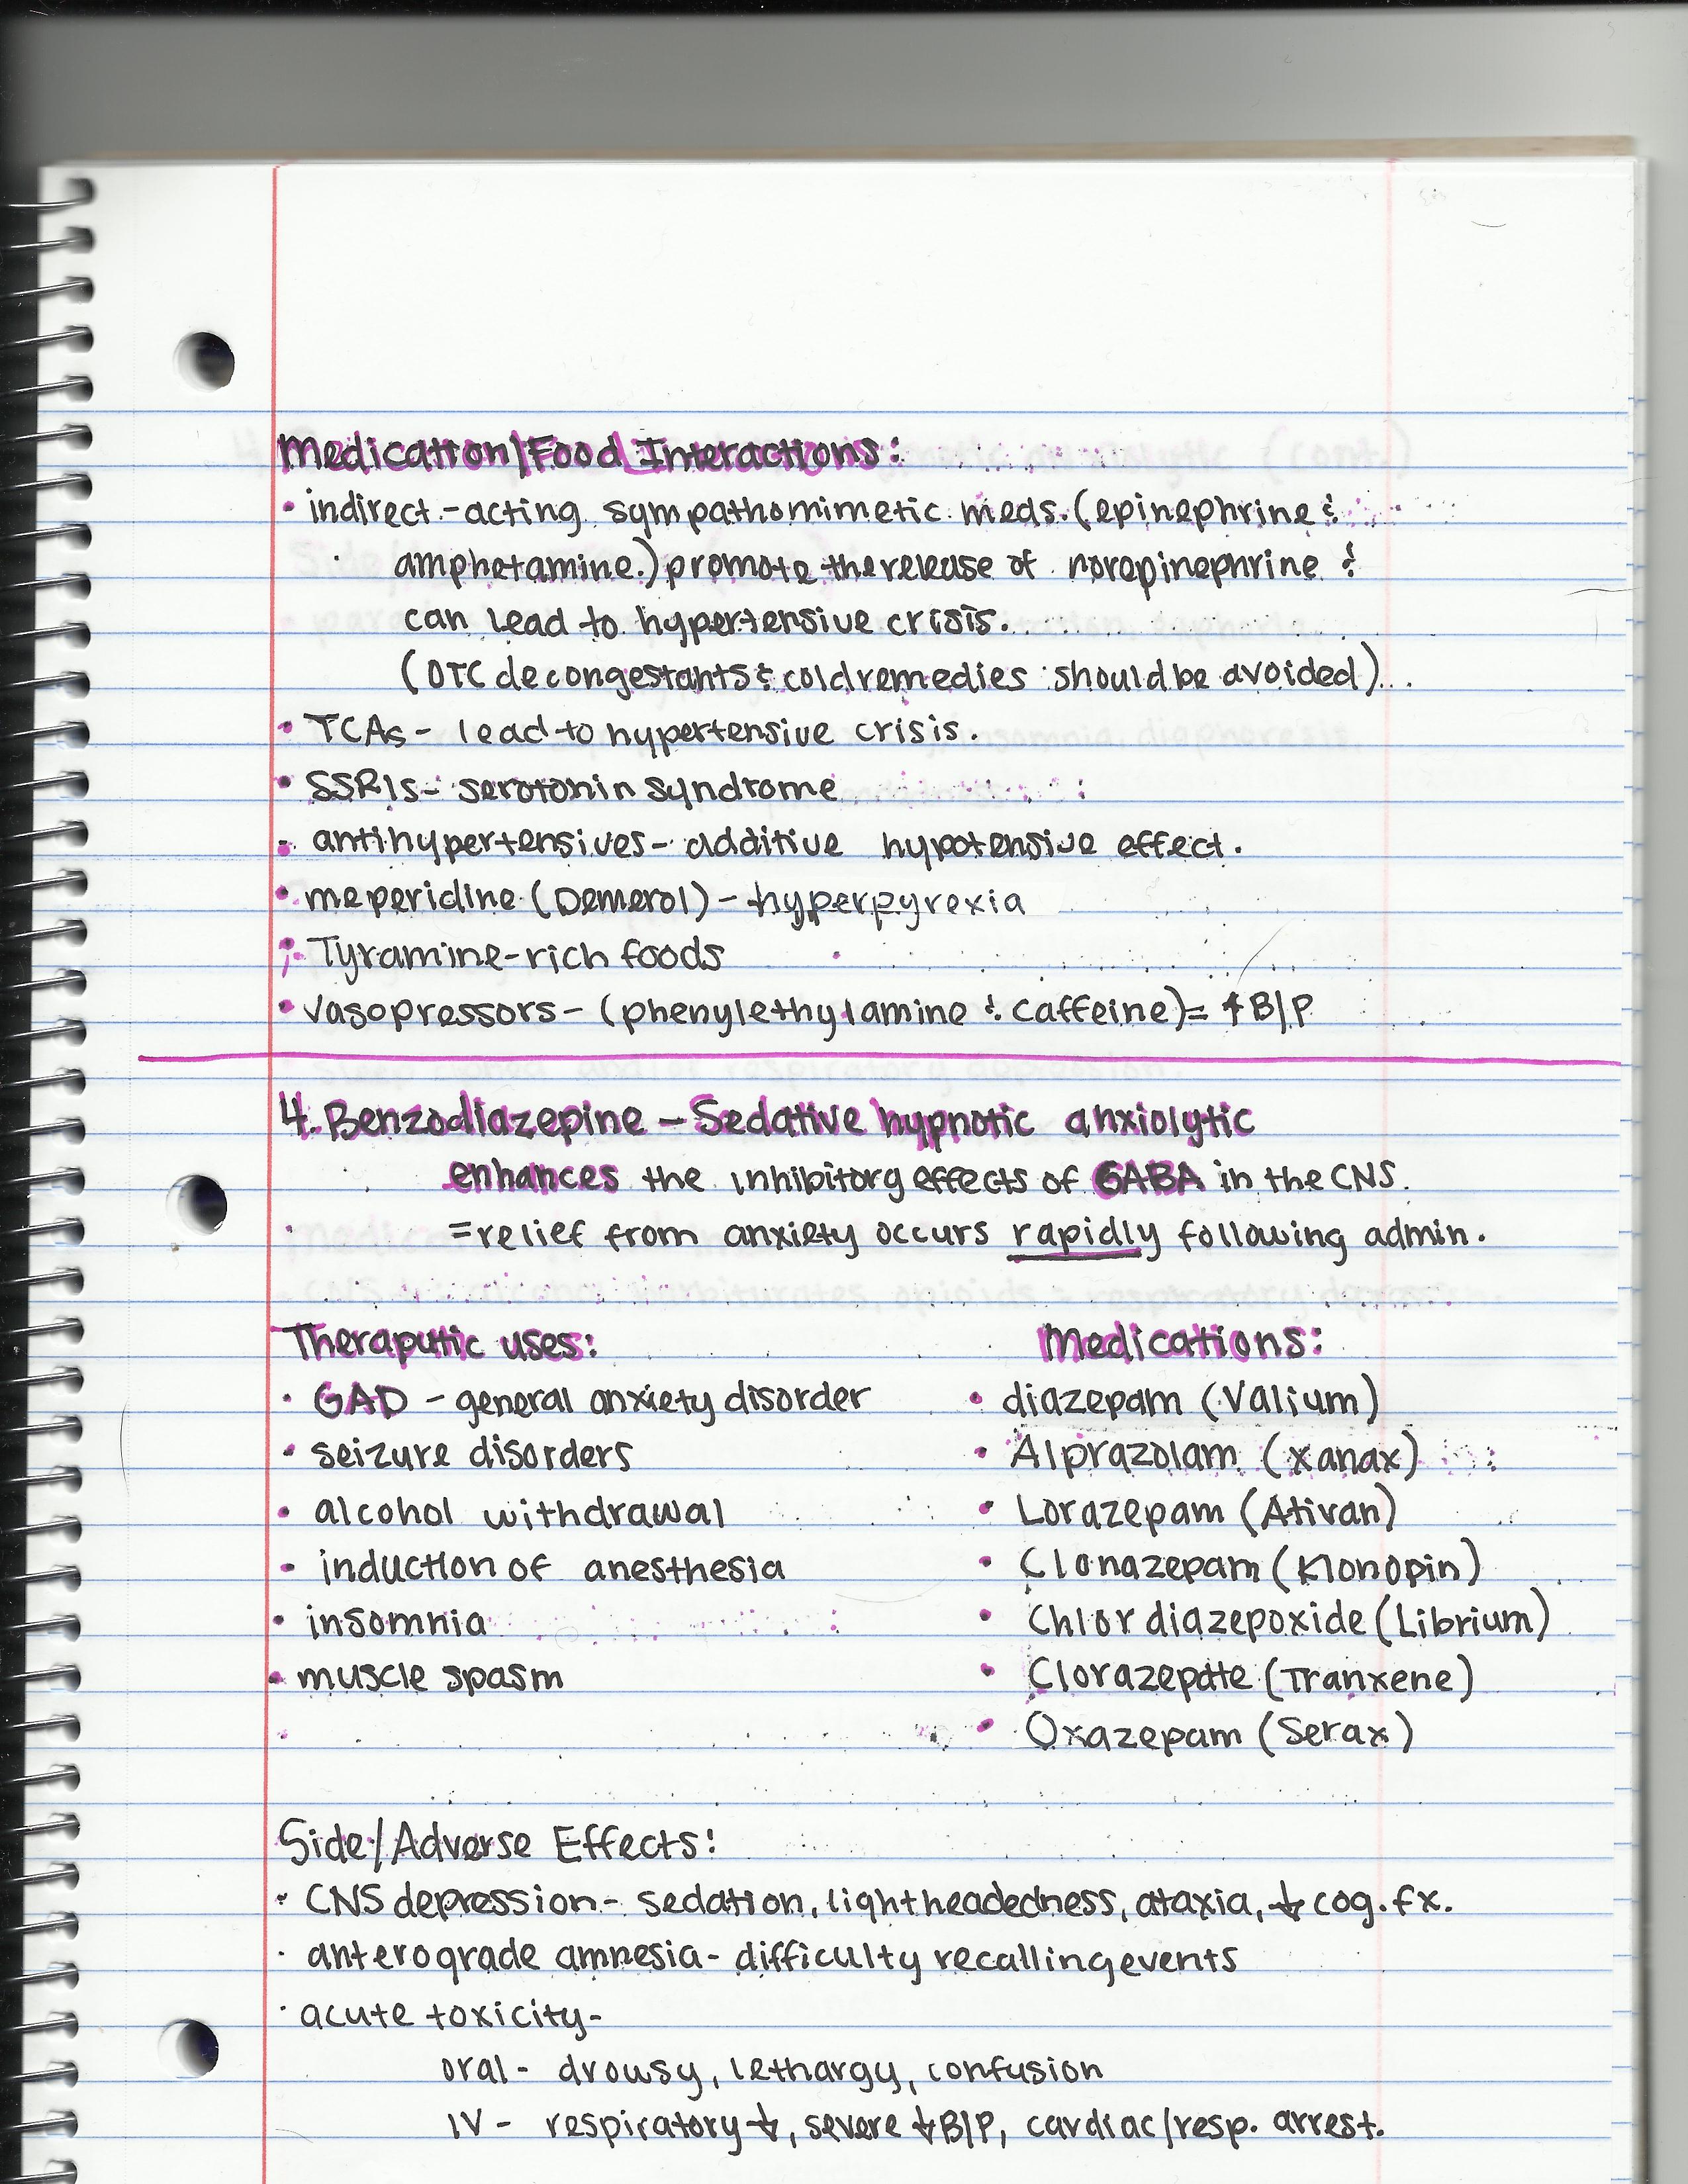 Medication/Food Interactions:
• indirect-acting sympathomimetic meds. (epinephrine &
amphetamine.) promote the release of norepinephrine &
can lead to hypertensive crisis.
(OTC decongestants & cold remedies should be avoided)...
• TCAs - lead to hypertensive crisis.
• SSRIs - serotonin syndrome
• antihypertensives - additive hypotensive effect.
• meperidine (Demerol) - hyperpyrexia
• Tyramine-rich foods
• vasopressors - (phenylethylamine & caffeine) = ↑ B/P
4. Benzodiazepine - Sedative hypnotic anxiolytic
enhances the inhibitory effects of GABA in the CNS.
= relief from anxiety occurs rapidly following admin.
Theraputic uses: Medications:
• GAD - general anxiety disorder • diazepam (Valium)
• seizure disorders • Alprazolam (xanax)
• alcohol withdrawal • Lorazepam (Ativan)
• induction of anesthesia • Clonazepam (Klonopin)
• insomnia • Chlordiazepoxide (Librium)
• muscle spasm • Clorazepate (Tranxene)
• Oxazepam (Serax)
Side/Adverse Effects:
• CNS depression - sedation, lightheadedness, ataxia, ↓ cog. fx.
• anterograde amnesia - difficulty recalling events
• acute toxicity -
oral - drowsy, lethargy, confusion
IV - respiratory ↓, severe ↓ B/P, cardiac/resp. arrest.